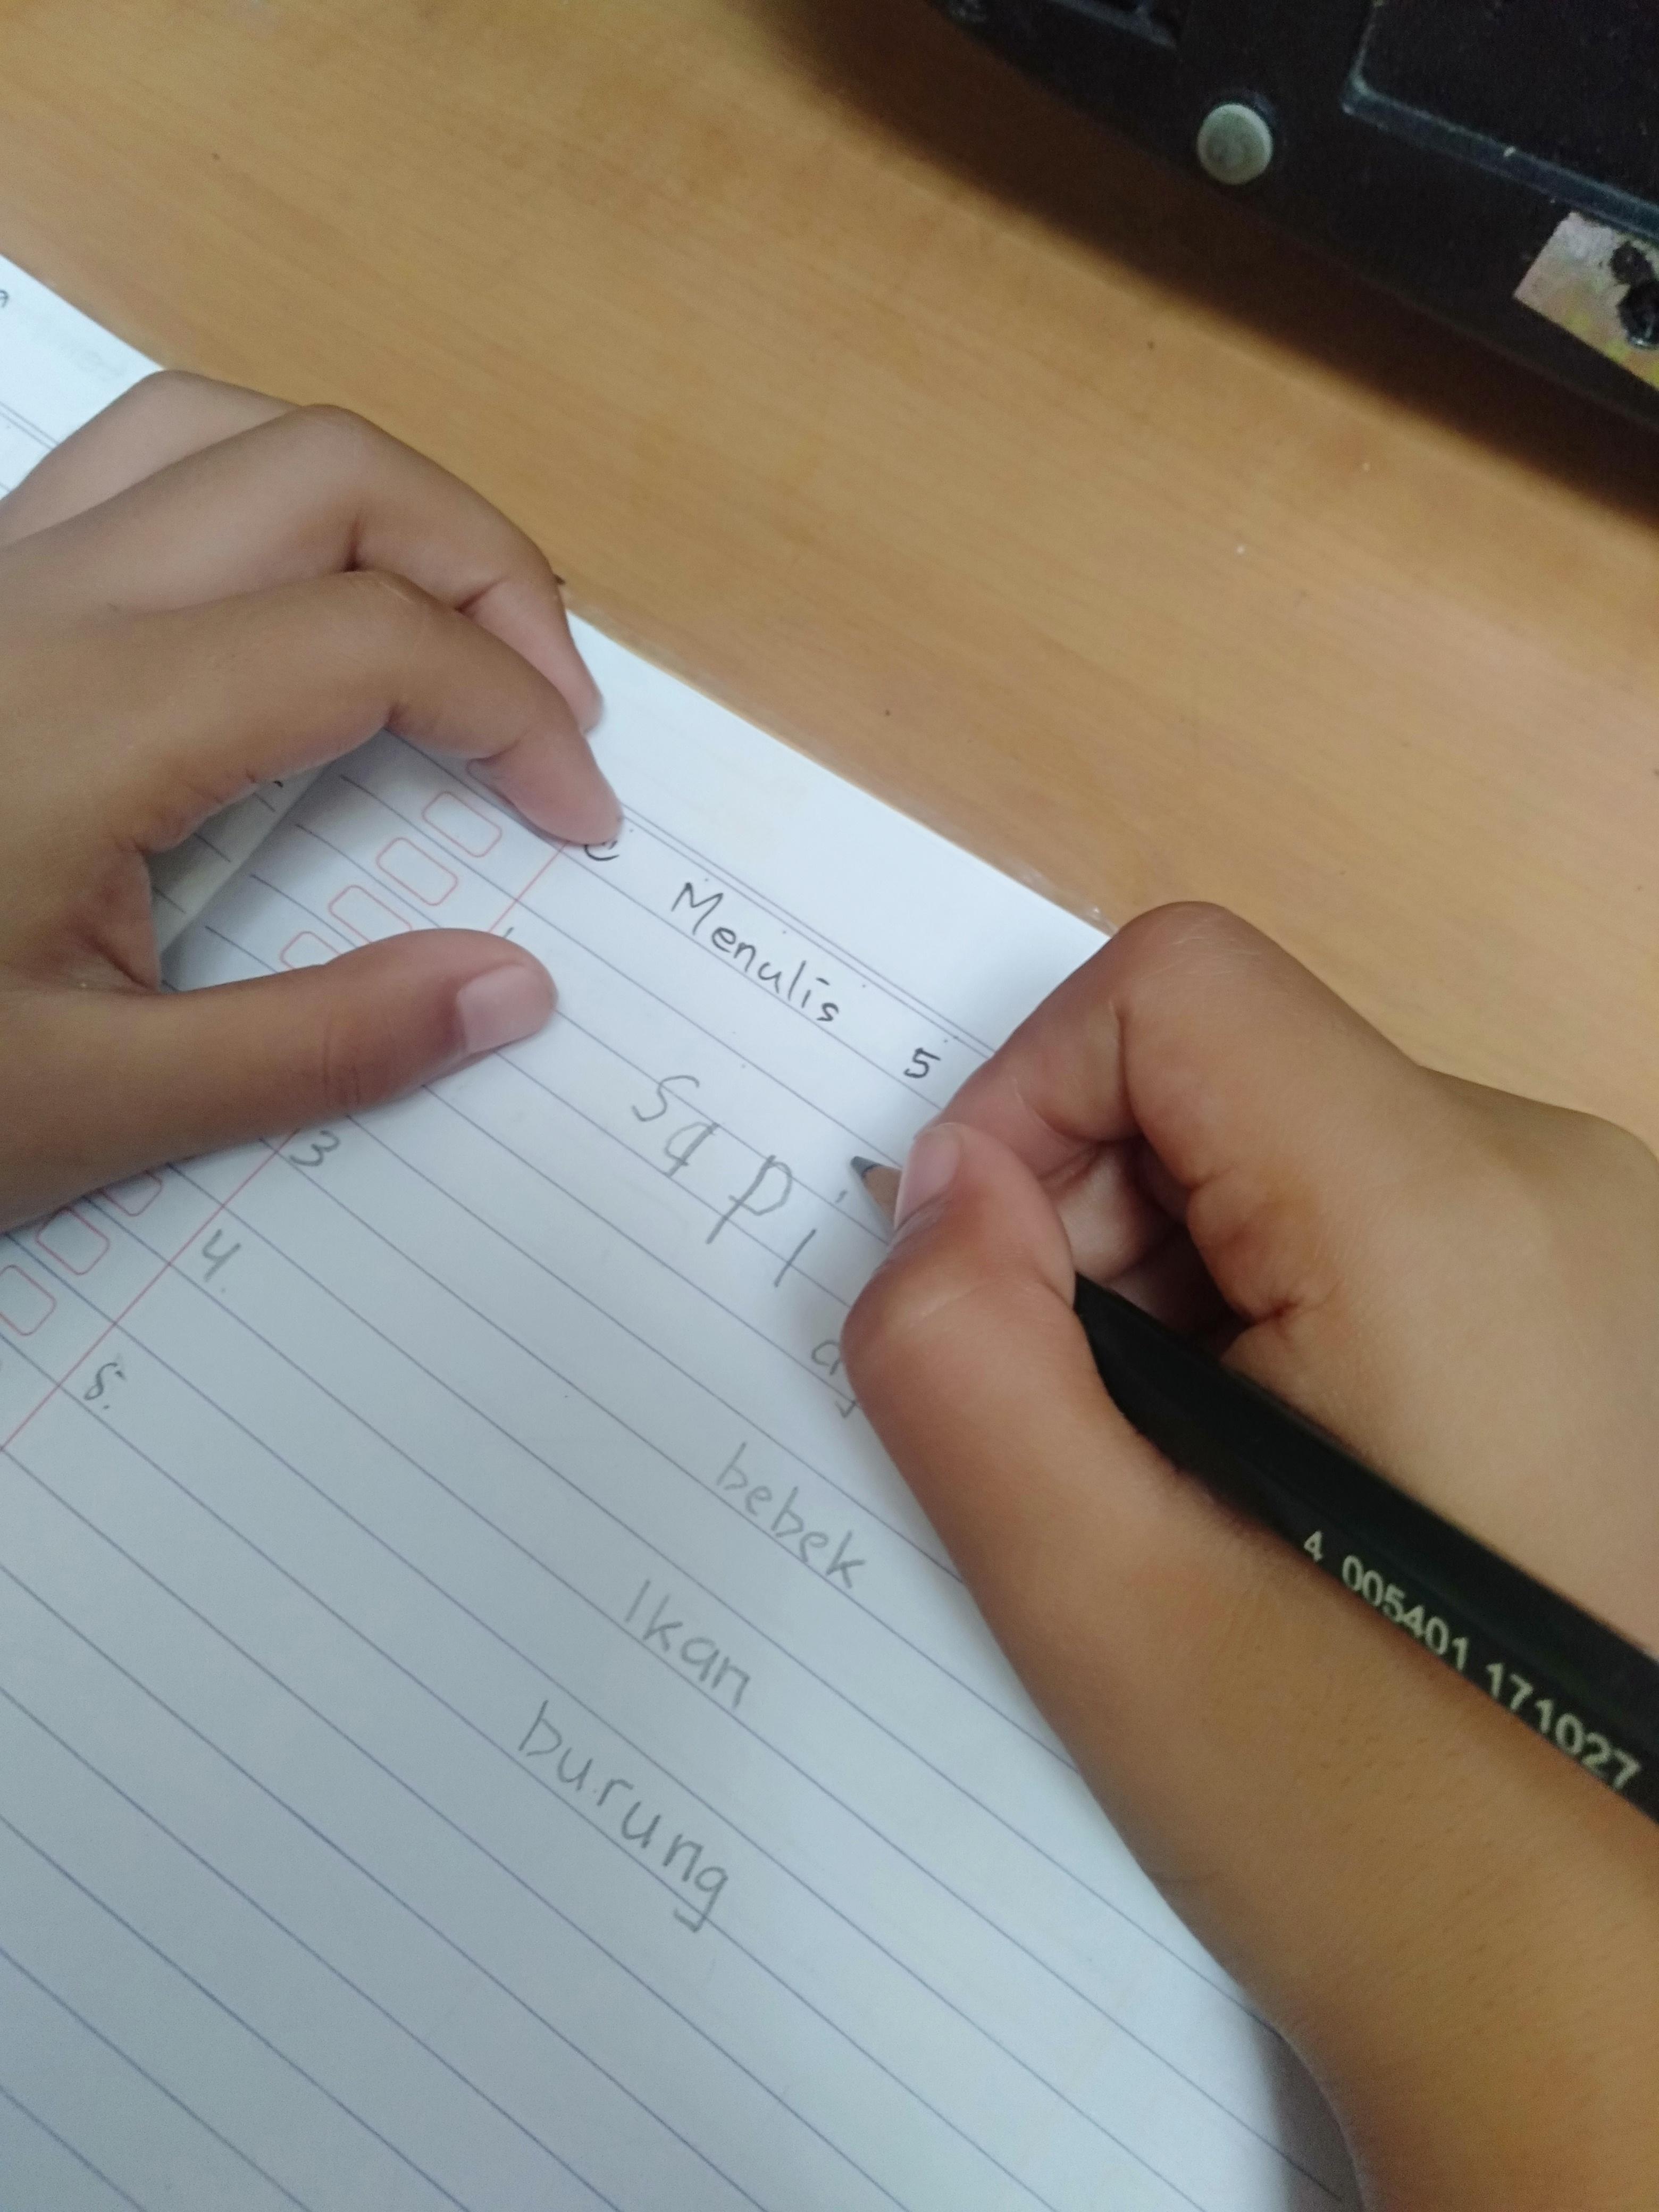 Menulis 5
sapi
3
4.
bebek
5.
Ikan
burung
4 005401 171027